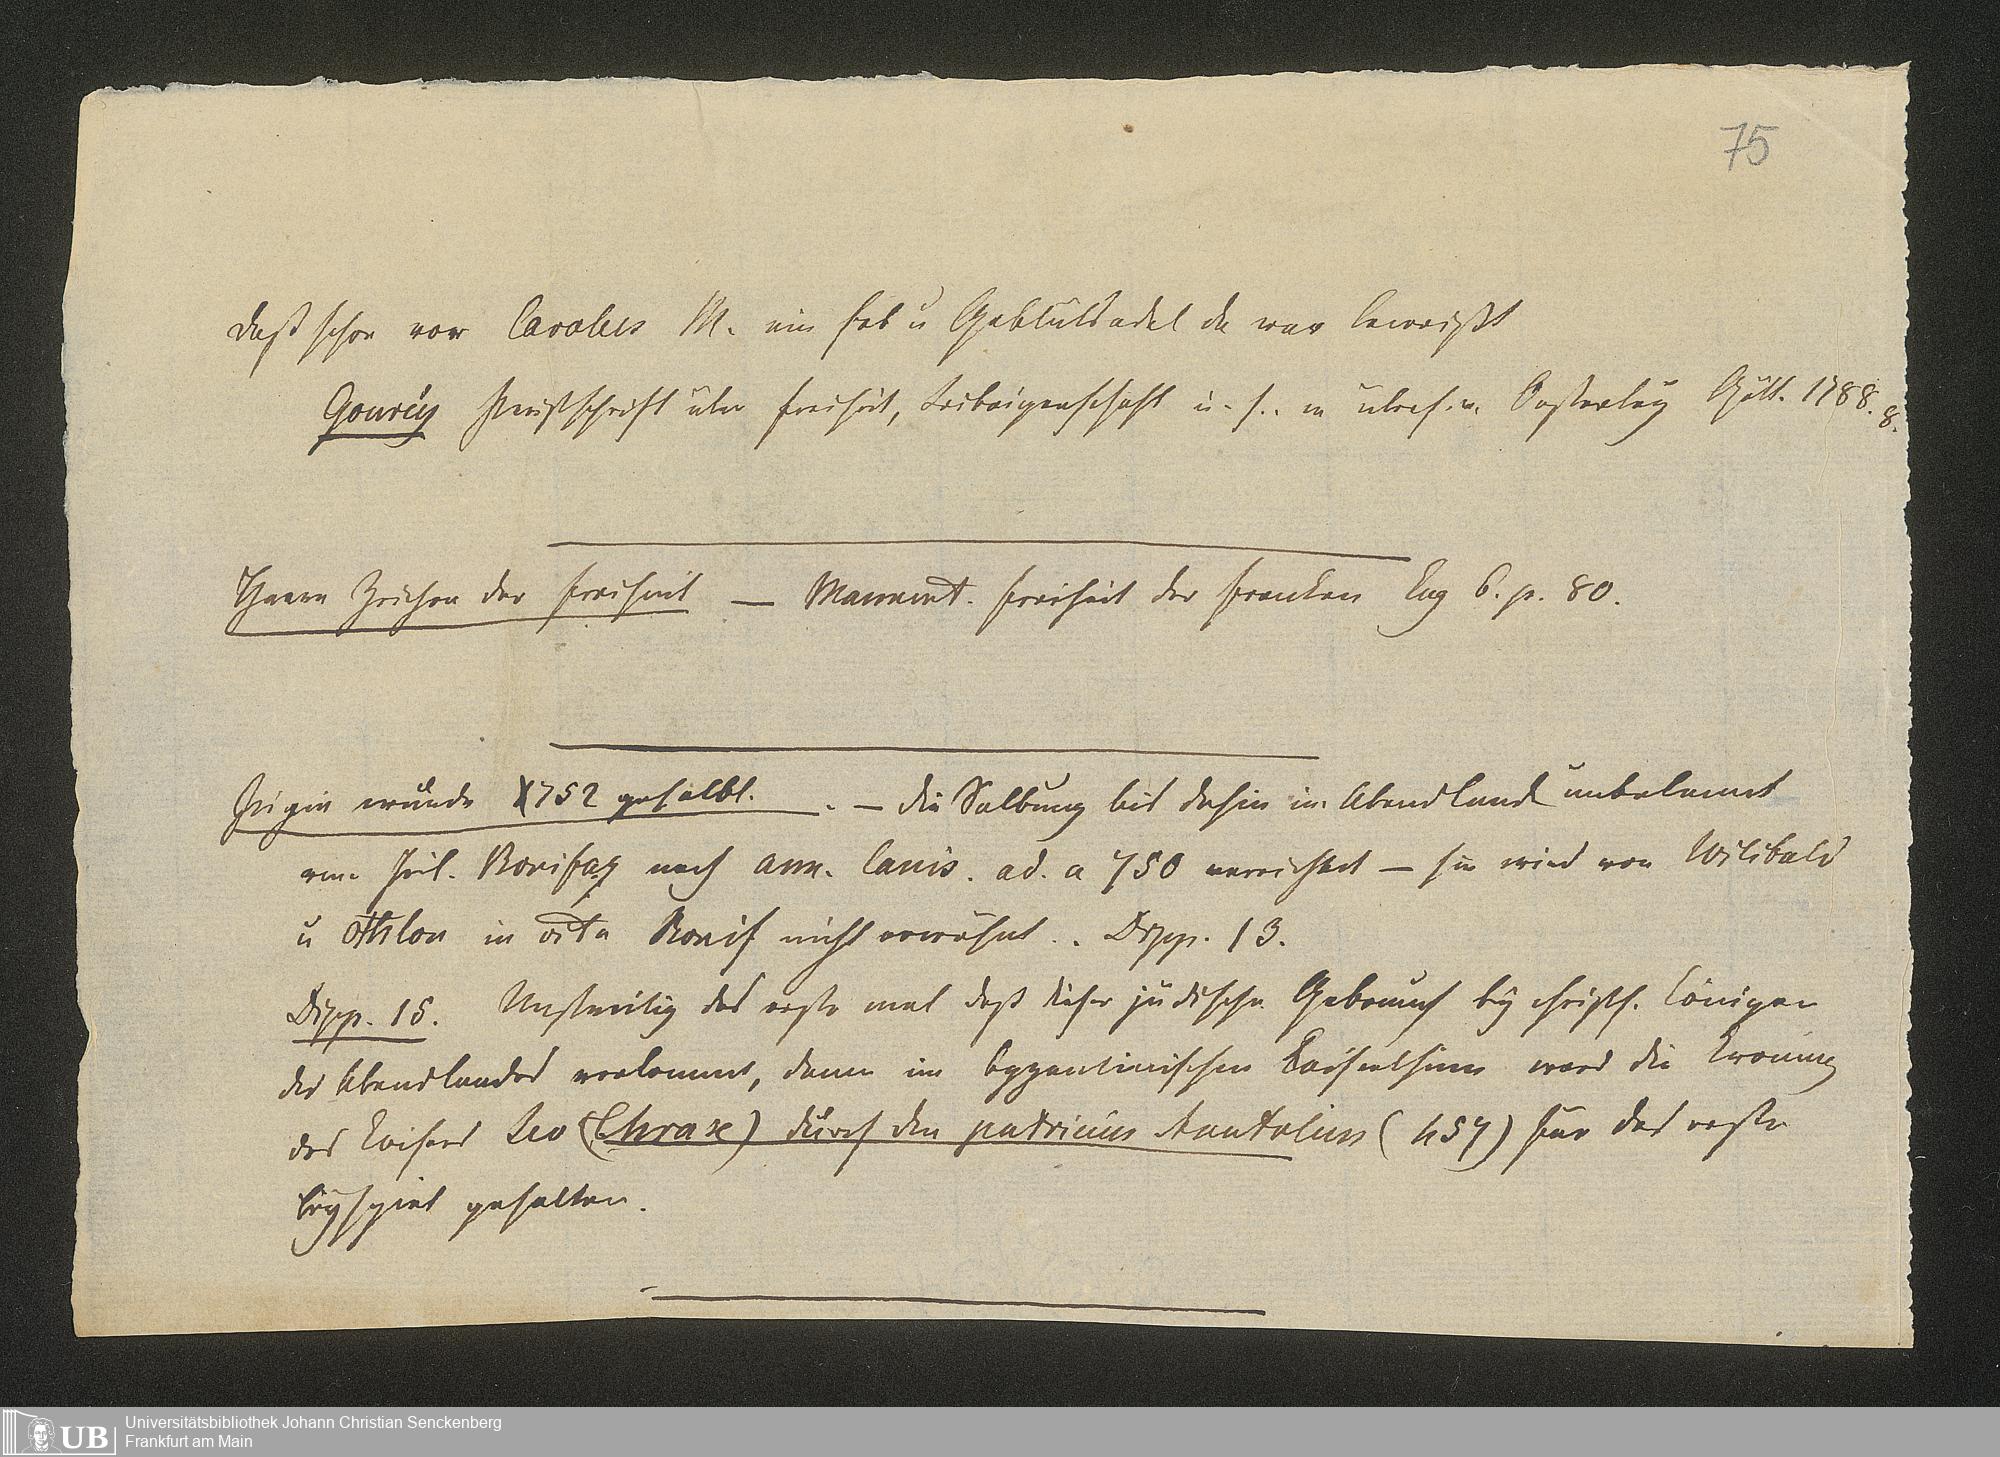 75
daß schon vor Carolus M. ein Erb u Geblütsadel da war beweißt
Gourcy Preißschrift über Freiheit, Leibeigenschaft u. s. w übers. v. Oesterley Gött. 1788. 8.
Haare Zeichen der Freiheit — Mannert. Freiheit der Franken Cap 6. p. 80.
Pipin wurde 752 gesalbt. — die Salbung bis dahin im Abendland unbekannt
von heil. Bonifaz nach ann. Lauris. ad. a 750 verrichtet — sie wird von Wilibald
u Othlon in vita Bonif nicht erwähnt. Dipp. 13.
Dipp. 15. Unstreitig das erste mal daß dieser jüdische Gebrauch bey christl. Königen
des Abendlandes vorkommt, denn im byzantinischen Kaiserthum ward die Krönung
des Kaisers Leo (Thrax) durch den patricius Anatolius (457) für das erste
beyspiel gehalten.
UB
Universitätsbibliothek Johann Christian Senckenberg
Frankfurt am Main